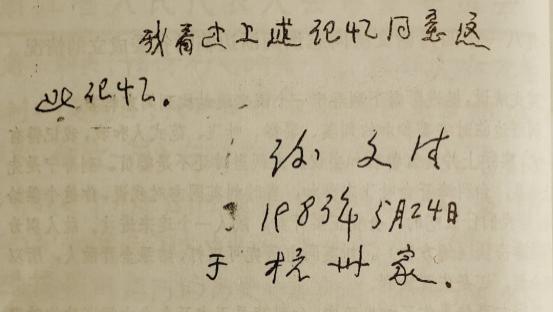 我看过上述记忆同意这
些记忆。
徐文
1983年5月24日
于杭州家。